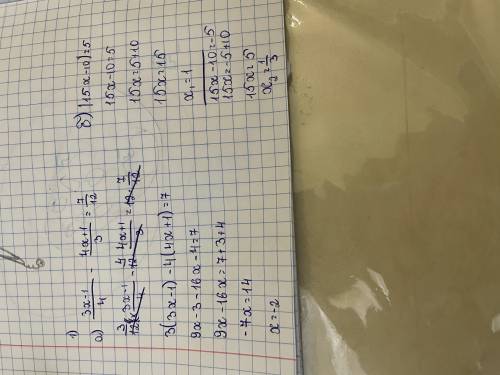 1)
а) (3x-1)/4 - (4x+1)/3 = 7/12
12·(3x-1)/4 - 12·(4x+1)/3 = 12·7/12
3(3x-1)-4(4x+1)=7
9x-3-16x-4=7
9x-16x=7+3+4
-7x=14
x=-2
б) |15x-10|=5
15x-10=5
15x=5+10
15x=15
x₁=1
15x-10=-5
15x=-5+10
15x=5
x₂=1/3